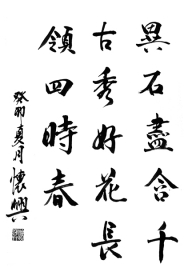 異石盡含千
古秀好花長
領四時春
癸卯夏月懷興